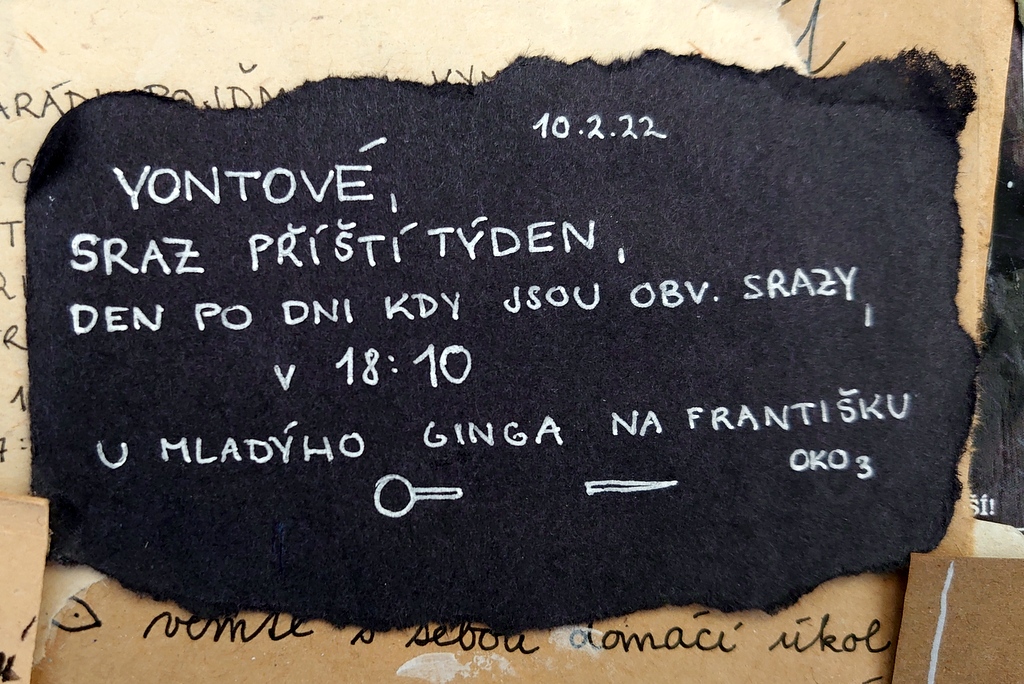 10.2.22
YONTOVÉ,
SRAZ PŘÍŠTÍ TÝDEN,
DEN PO DNI KDY JSOU OBV. SRAZY,
V 18:10
U MLADÝHO GINGA NA FRANTIŠKU
OKO 3
ŠÍ!
vemte s sebou domácí úkol